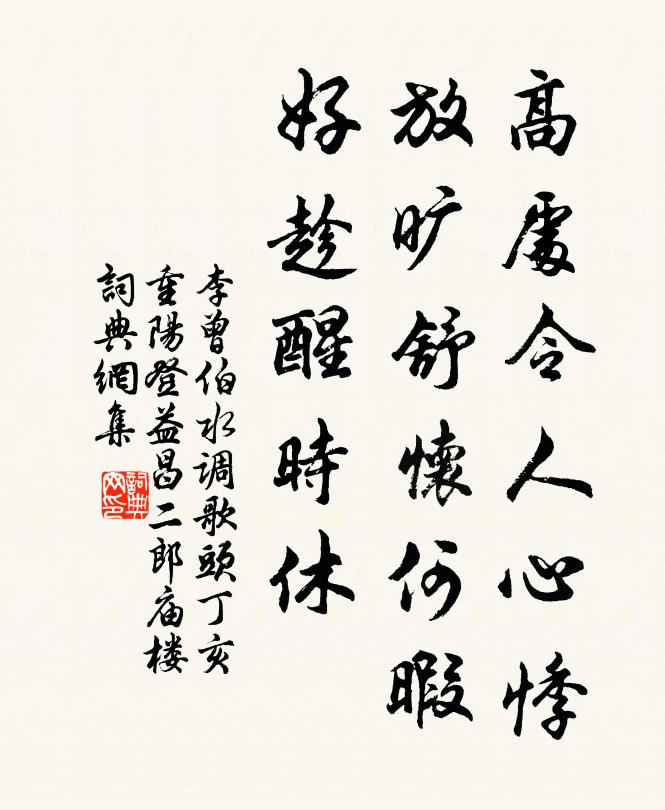 高處令人心悸
放旷舒懷何暇
好趁醒時休
李曾伯水调歌頭丁亥
重陽登益昌二郎庙楼
詞典網集
詞典
网印